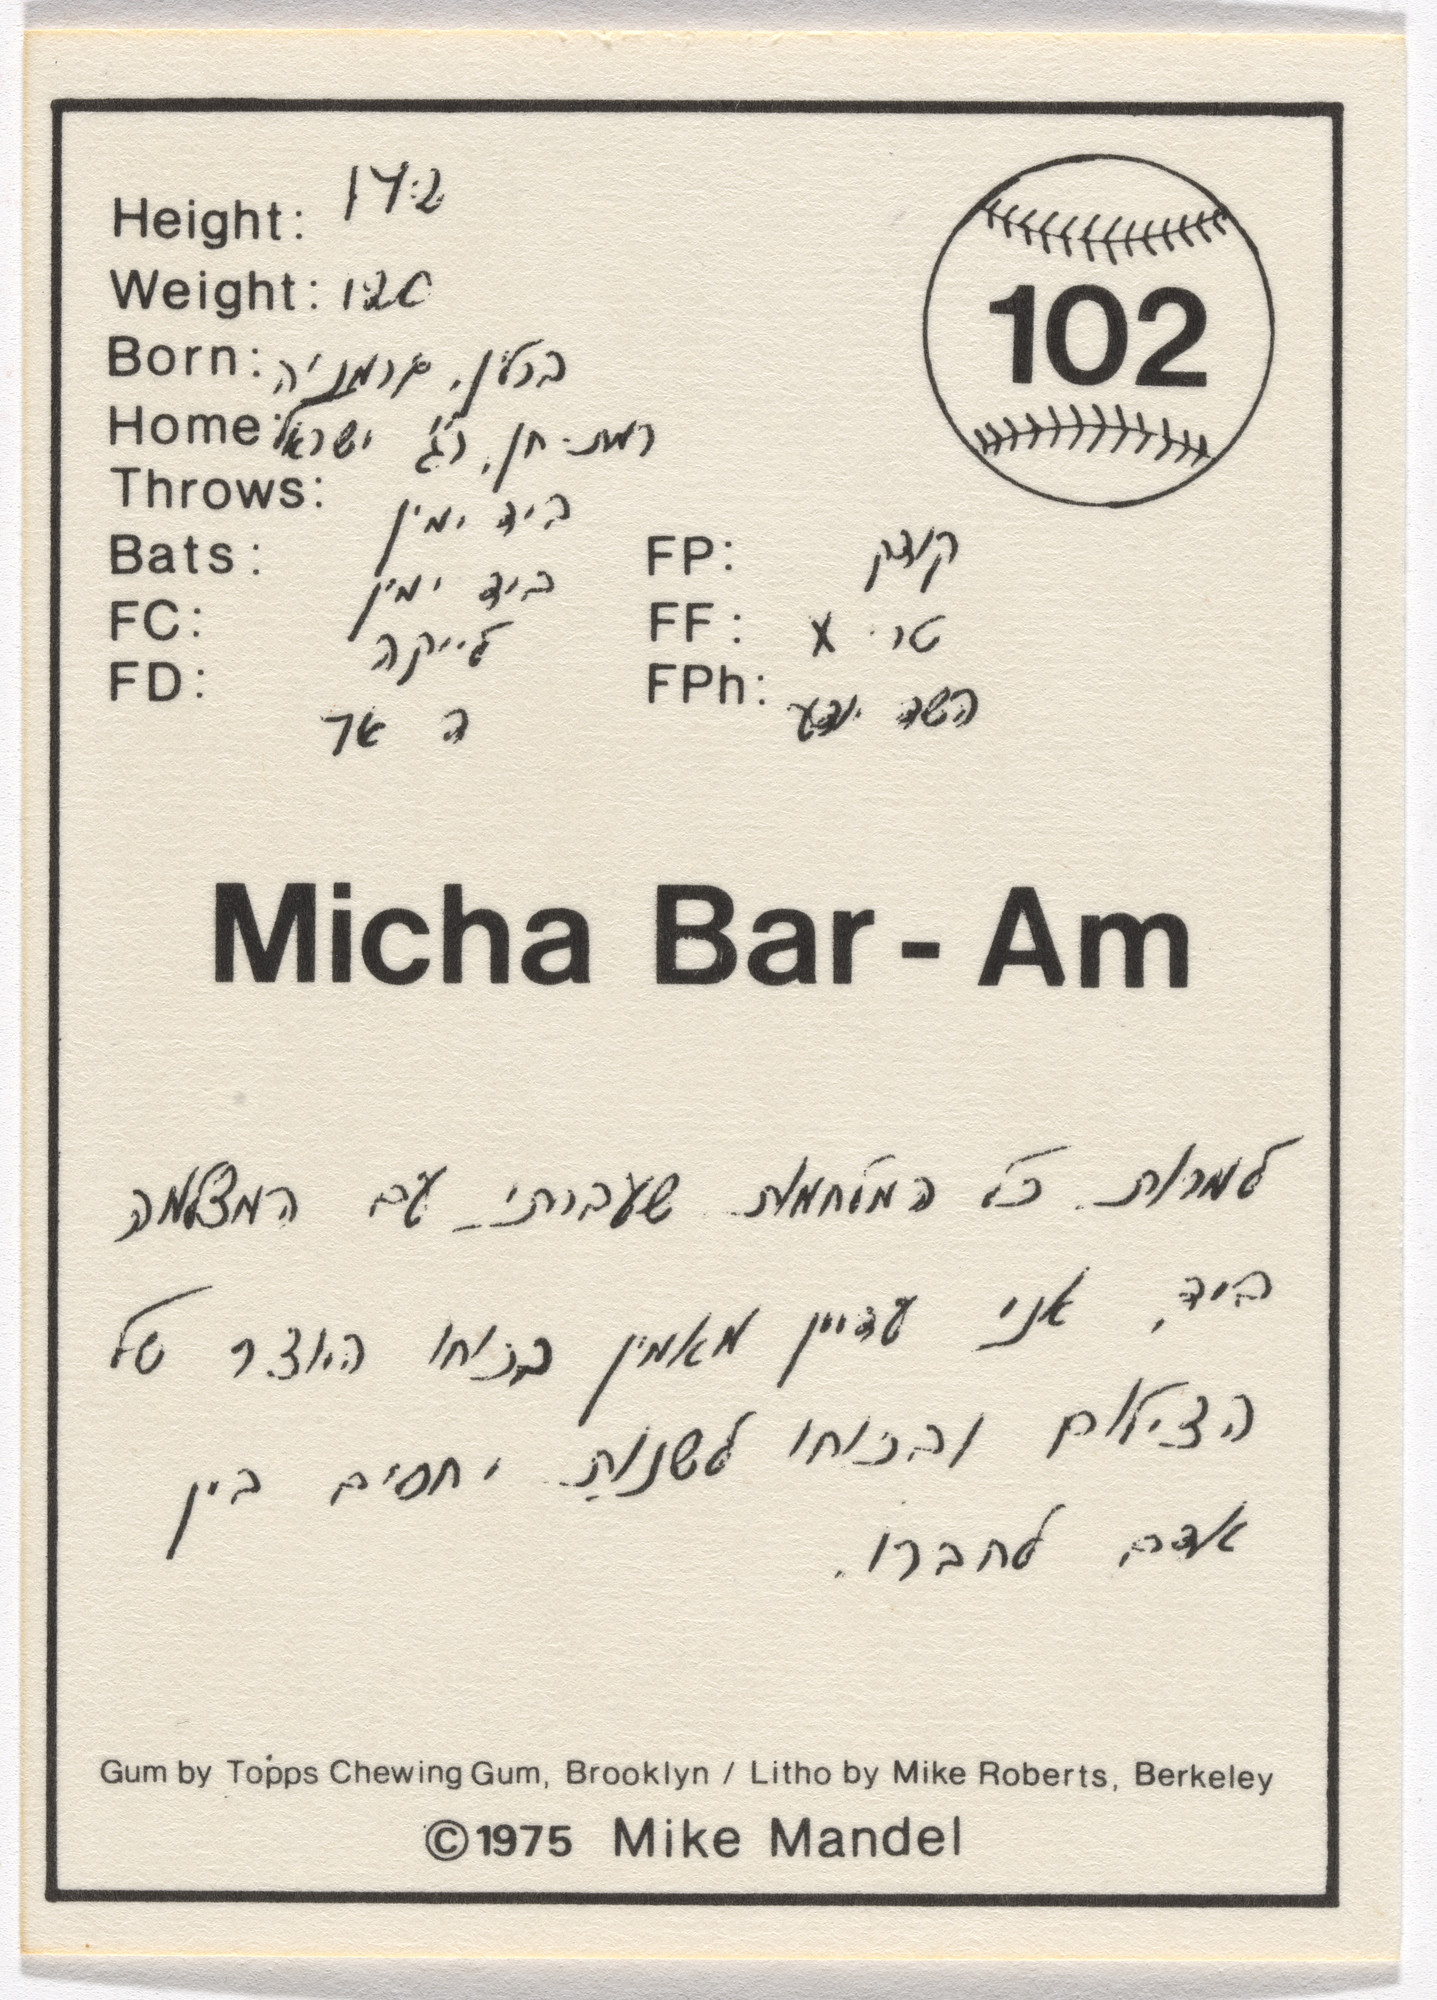 Height: 172
102
Weight: 120
Born: ברלין, גרמניה
Home: רמת-חן, ר"ג ישראל
Throws: ביד ימין
Bats: ביד ימין
FP: קודק
FC: לייקה
FF: טרי X
FD: ה
FPh: השד יודע
Micha Bar-Am
למרות כל המלחמות שעברתי עם המצלמה
ביד, אני עדיין מאמין בכוחו היוצר של
הצילום ובכוחו לשנות יחסים בין
אדם לחברו.
Gum by Topps Chewing Gum, Brooklyn / Litho by Mike Roberts, Berkeley
©1975 Mike Mandel